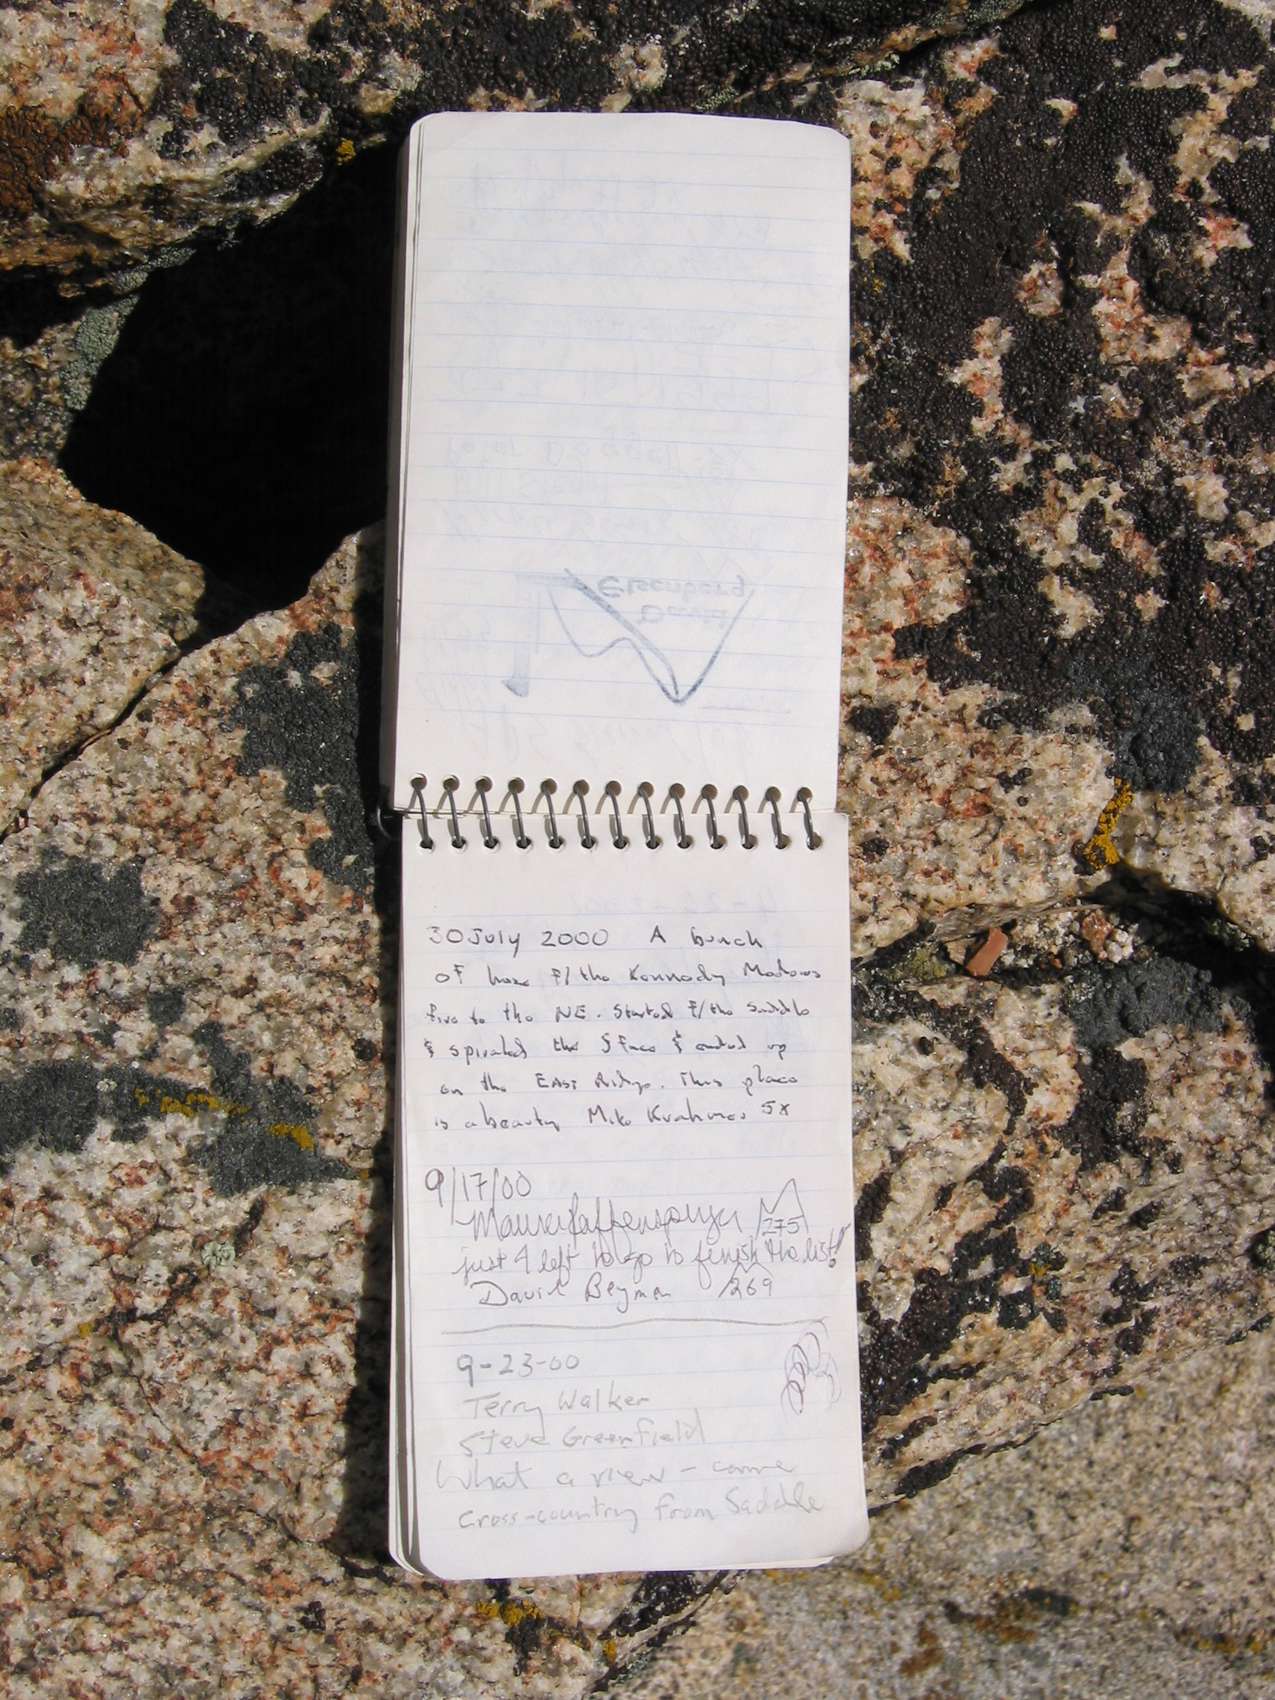 David
Eisenberg
30 July 2000 A bunch
of haze f/ the Kennedy Meadows
fire to the NE. Started f/ the saddle
& spiraled the S face & ended up
on the EAST Ridge. This place
is a beauty Mike 5x
9/17/00
275
just 4 left to go to finish the list!
David Beymer 269
9-23-00
Terry Walker
Steve Greenfield
What a view - came
cross-country from Saddle